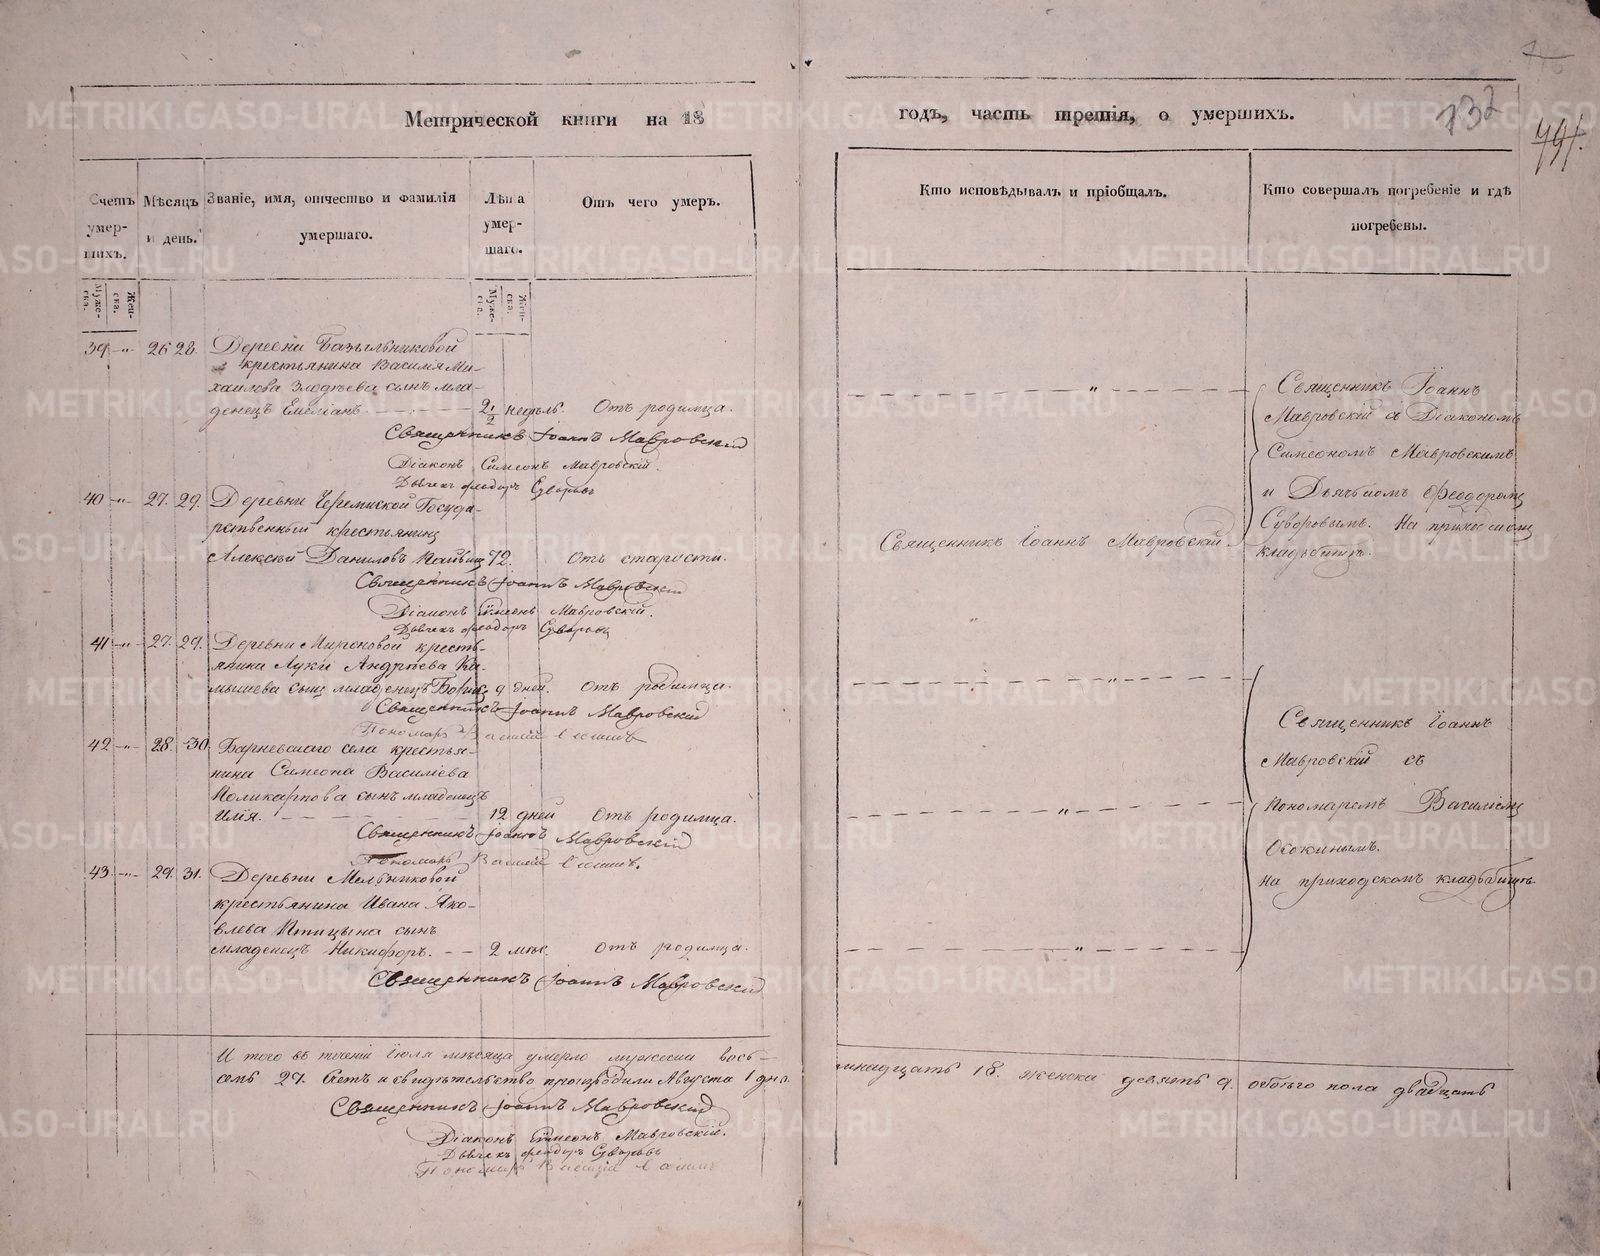 Метрической книги на 18 годъ, часть третія, о умершихъ.
132
Счетъ умер-шихъ.
Муже-ска.
Жен-ска.
Мѣсяцъ и день.
Званіе, имя, отчество и фамилія умершаго.
Лѣта умер-шаго.
Муже-ска.
Жен-ска.
Отъ чего умеръ.
Кто исповѣдывалъ и пріобщалъ.
Кто совершалъ погребеніе и гдѣ погребены.
39 -"- 26 28. Деревни
крестьянина Василія Ми-
хаилова Злодѣева сынъ мла-
денецъ Емеліанъ 2 1/2 недѣль. Отъ родимца.
Священникъ Іоаннъ Мавровскій
Діаконъ Симеонъ Мавровскій.
Дьячекъ Феодоръ Суворовъ
40 -"- 27. 29. Деревни Черемиской Госуда-
рственный крестьянинъ
Алексѣй Даниловъ 72. Отъ старости.
Священникъ Іоаннъ Мавровскій
Діаконъ Симеонъ Мавровскій.
Дьячекъ Феодоръ Суворовъ
41 -"- 27. 29. Деревни Мироновой кресть-
янина Луки Андрѣева Ка-
мышева сынъ младенецъ Борисъ 9 дней. Отъ родимца.
Священникъ Іоаннъ Мавровскій
Пономарь Василій
42 -"- 28. 30. Барневскаго села крестья-
нина Симеона Василіева
Поликарпова сынъ младенецъ
Илія. 12 дней Отъ родимца.
Священникъ Іоаннъ Мавровскій
Пономарь Василій
43. -"- 29. 31. Деревни Мельниковой
крестьянина Ивана Яко-
влева Птицына сынъ
младенецъ Никифоръ. 2 мѣс. Отъ родимца.
Священникъ Іоаннъ Мавровскій
Священникъ Іоаннъ Мавровскій.
Священникъ Іоаннъ
Мавровскій съ Діакономъ
Симеономъ Мавровскимъ
и Дьячкомъ Феодоромъ
Суворовымъ. На приходскомъ
кладбищѣ.
Священникъ Іоаннъ
Мавровскій съ
Пономаремъ Василіемъ
Ококинымъ.
На приходскомъ кладбищѣ.
И того въ теченіи Іюля мѣсяца умерло мужеска вось-
мнадцать 18. женска девять 9. обоего пола двадцать
семь 27. Счетъ и свидѣтельство производили Августа 1 дня.
Священникъ Іоаннъ Мавровскій
Діаконъ Симеонъ Мавровскій.
Дьячекъ Феодоръ Суворовъ
Пономарь Василій
METRIKI.GASO-URAL.RU